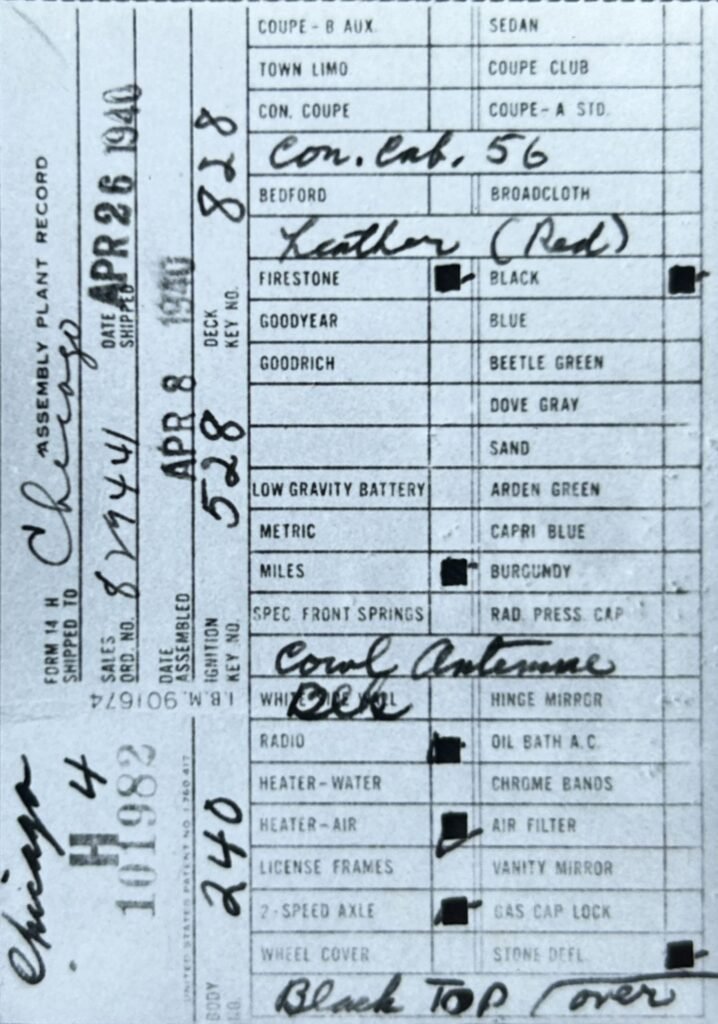 COUPE-B AUX. SEDAN
TOWN LIMO COUPE CLUB
CON. COUPE COUPE-A STD.
Con. Cab. 56
BEDFORD BROADCLOTH
Leather (Red)
FIRESTONE BLACK
GOODYEAR BLUE
GOODRICH BEETLE GREEN
DOVE GRAY
SAND
LOW GRAVITY BATTERY ARDEN GREEN
METRIC CAPRI BLUE
MILES BURGUNDY
SPEC. FRONT SPRINGS RAD. PRESS. CAP
Cowl Antenne
WHITE SIDE WALL Blk HINGE MIRROR
RADIO OIL BATH A.C.
HEATER-WATER CHROME BANDS
HEATER-AIR AIR FILTER
LICENSE FRAMES VANITY MIRROR
2-SPEED AXLE GAS CAP LOCK
WHEEL COVER STONE DEFL.
Black Top Cover
FORM 14 H ASSEMBLY PLANT RECORD
SHIPPED TO Chicago
SALES ORD. NO. 82944 DATE SHIPPED APR 26 1940
DATE ASSEMBLED APR 8 1940
IGNITION KEY NO. 528 DECK KEY NO. 828
I.B.M. 901674
Chicago
H 4
101982
UNITED STATES PATENT NO. 1 760 417
BODY NO. 240